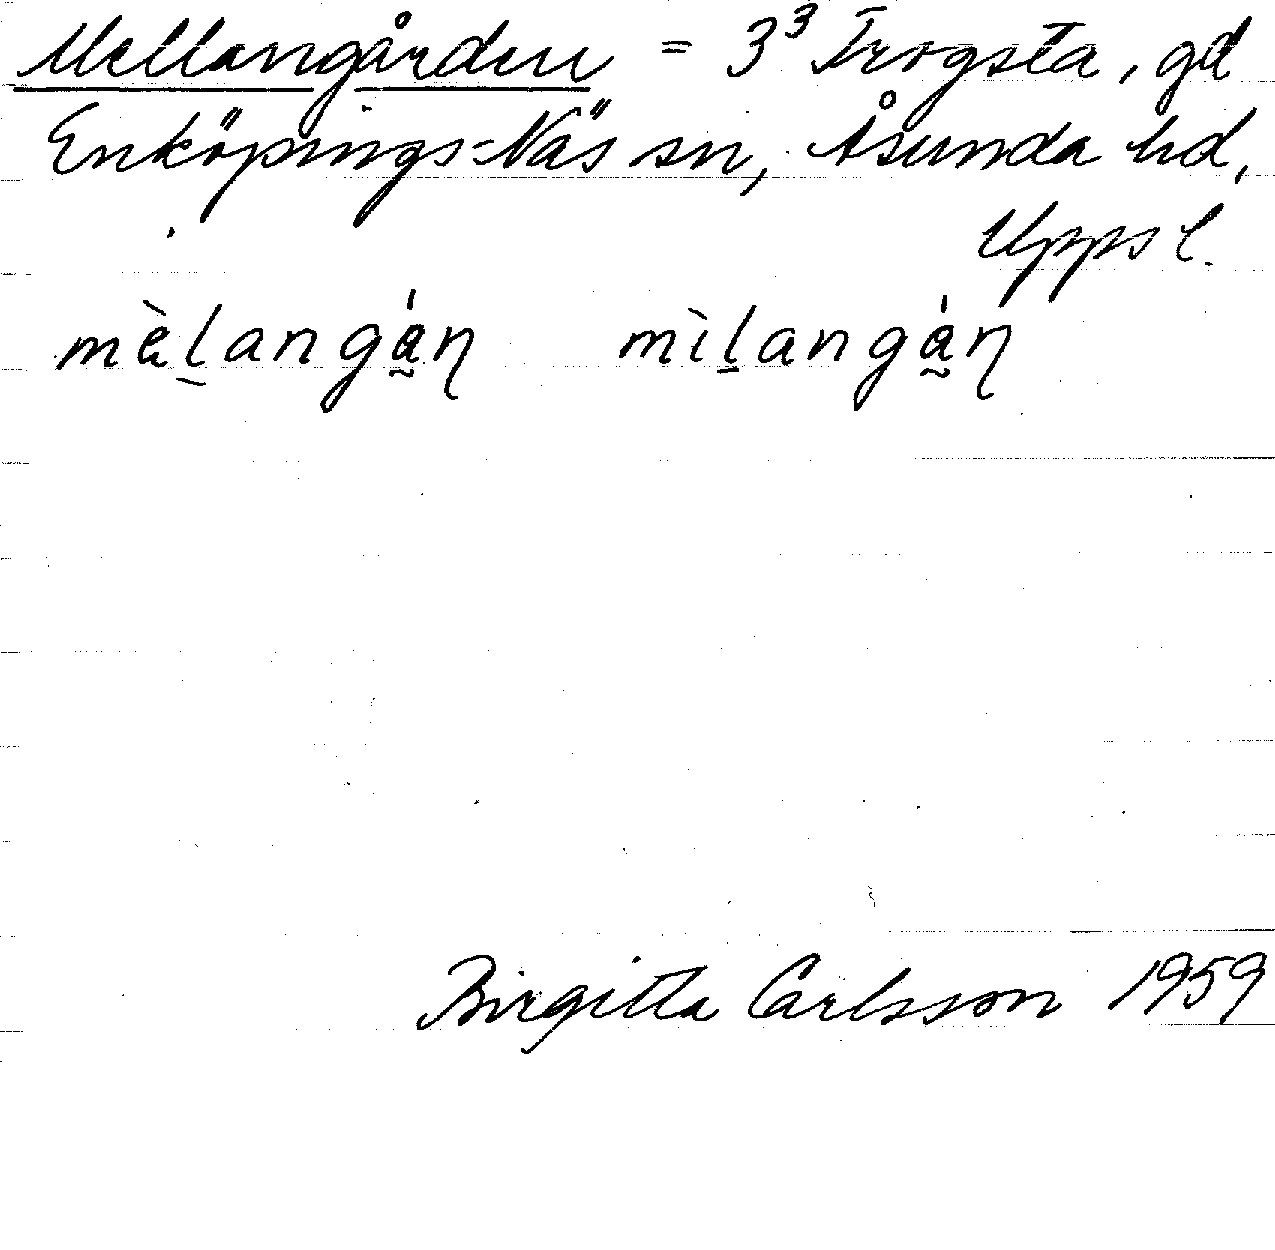 Mellangården = 3³ Trogsta, gd
Enköpings-Näs sn, Åsunda hd,
Upps l.
mèl̠angá̰ɳ mìl̠angá̰ɳ
Birgitta Carlsson 1959